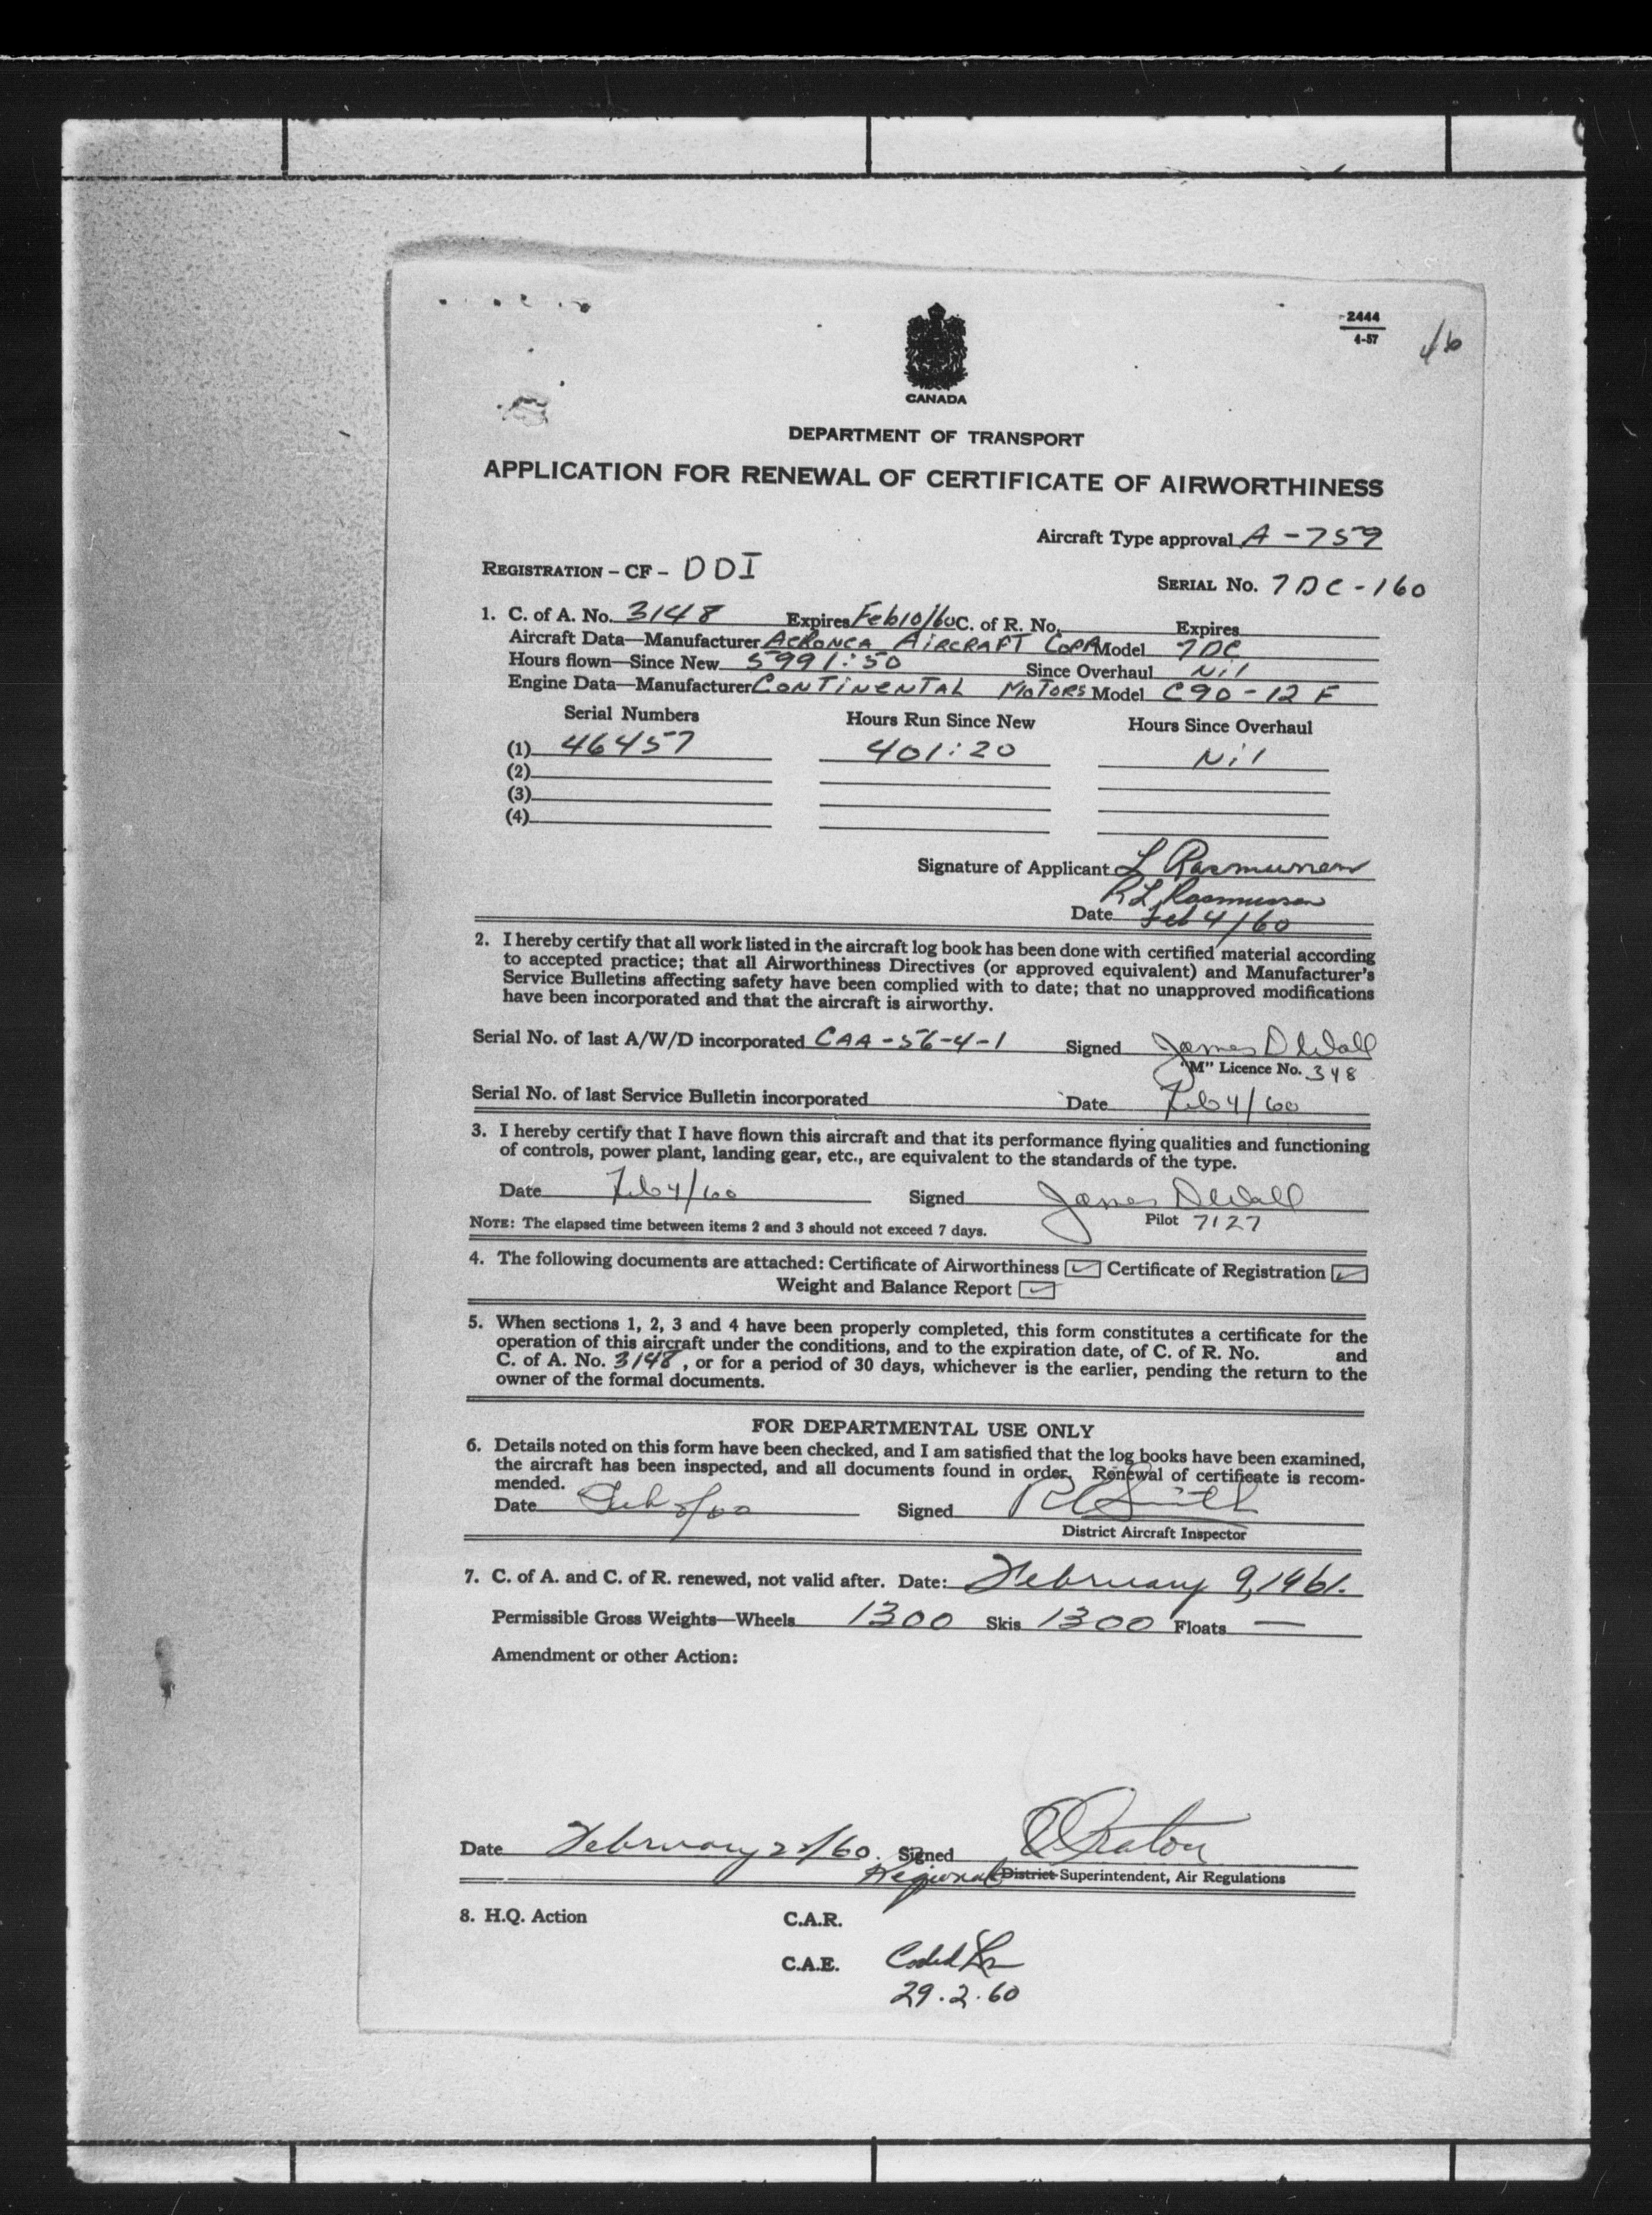 2444
4-57
CANADA
DEPARTMENT OF TRANSPORT
APPLICATION FOR RENEWAL OF CERTIFICATE OF AIRWORTHINESS
Aircraft Type approval A-759
REGISTRATION - CF - DDI
SERIAL No. 7DC-160
1. C. of A. No. 3148 Expires Feb10/60 C. of R. No. Expires
Aircraft Data—Manufacturer AERONCA AIRCRAFT CORP Model 7DC
Hours flown—Since New 5991:50 Since Overhaul Nil
Engine Data—Manufacturer CONTINENTAL MOTORS Model C90-12F
Serial Numbers Hours Run Since New Hours Since Overhaul
(1) 46457 401:20 Nil
(2)
(3)
(4)
Signature of Applicant L Rasmussen
R L Rasmussen
Date Feb 4/60
2. I hereby certify that all work listed in the aircraft log book has been done with certified material according
to accepted practice; that all Airworthiness Directives (or approved equivalent) and Manufacturer's
Service Bulletins affecting safety have been complied with to date; that no unapproved modifications
have been incorporated and that the aircraft is airworthy.
Serial No. of last A/W/D incorporated CAA-56-4-1 Signed James D Wall
"M" Licence No. 348
Serial No. of last Service Bulletin incorporated Date Feb 4/60
3. I hereby certify that I have flown this aircraft and that its performance flying qualities and functioning
of controls, power plant, landing gear, etc., are equivalent to the standards of the type.
Date Feb 4/60 Signed James D Wall
Pilot 7127
NOTE: The elapsed time between items 2 and 3 should not exceed 7 days.
4. The following documents are attached: Certificate of Airworthiness ✓ Certificate of Registration ✓
Weight and Balance Report ✓
5. When sections 1, 2, 3 and 4 have been properly completed, this form constitutes a certificate for the
operation of this aircraft under the conditions, and to the expiration date, of C. of R. No. and
C. of A. No. 3148, or for a period of 30 days, whichever is the earlier, pending the return to the
owner of the formal documents.
FOR DEPARTMENTAL USE ONLY
6. Details noted on this form have been checked, and I am satisfied that the log books have been examined,
the aircraft has been inspected, and all documents found in order. Renewal of certificate is recom-
mended.
Date Feb Signed Smith
District Aircraft Inspector
7. C. of A. and C. of R. renewed, not valid after. Date: February 9, 1961.
Permissible Gross Weights—Wheels 1300 Skis 1300 Floats —
Amendment or other Action:
Date February /60. Signed
Regional District Superintendent, Air Regulations
8. H.Q. Action C.A.R.
C.A.E. Coded
29.2.60